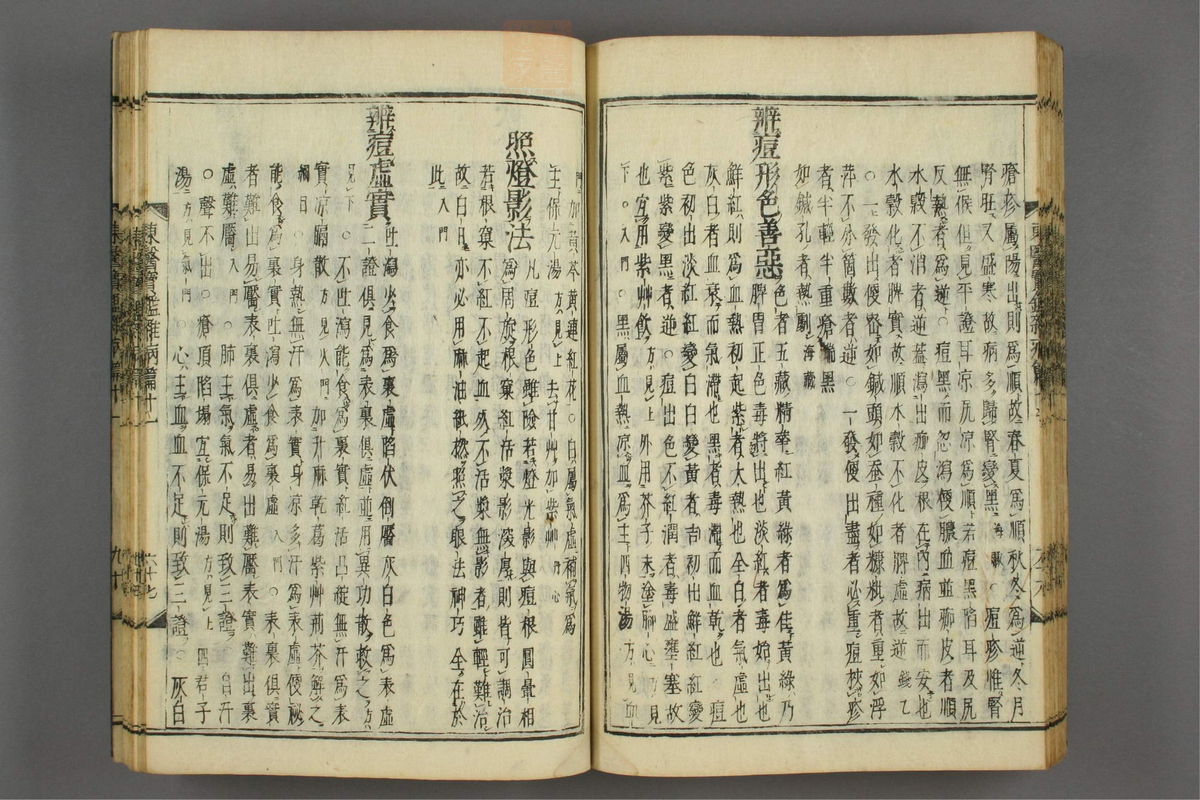 瘡疹屬陽出則爲順故春夏爲順秋冬爲逆冬月
腎旺又盛寒故病多歸腎變黑海藏○痘疹惟腎
無候但見平證耳凉尻凉爲順若痘黑陷耳及尻
反熱者爲逆○痘黑而忽瀉便膿血並痂皮者順
水穀不消者逆盖瀉出痂皮根在內病出而安也
水穀化者脾實故順水穀不化者脾虛故逆錢乙
○一發出便密如鍼頭如蚕種如糠粃者重如浮
萍不分箇數者逆○一發便出盡者必重痘夾疹
者半輕半重瘡端黑
如鍼孔者熱劇海藏
辨痘形色善惡
色者五藏精華紅黃綠者爲佳黃綠乃
脾胃正色毒將出也淡紅者毒始出也
鮮紅則爲血熱初起紫者大熱也全白者氣虛也
灰白者血衰而氣滯也黑者毒滯而血乾也○痘
色初出淡紅變白白變黃者吉初出鮮紅紅變
紫紫變黑者逆○痘出色不紅潤者毒盛壅塞故
也宜用紫艸飮方見上外用芥子末塗脚心方見
下○入門○黑屬血熱凉血爲主四物湯方見血
門加黃芩黃連紅花○白屬氣虛補氣爲
主保元湯方見上去甘艸加紫艸門心
照燈影法
凡痘形色雖險若燈光影與痘根圓暈相
爲周旋根窠紅活漿影滾厚則皆可調治
若根窠不紅不起血死不活漿無影者雖輕難治
故白日亦必用麻油紙撚照之眼法神巧全在於
此入門
辨痘虛實
吐瀉少食爲裏虛陷伏倒靨灰白色爲表虛
二證俱見爲表裏俱虛並用異功散救之方
見下○不吐瀉能食爲裏實紅活凸綻無汗爲表
實凉膈散方見火門加升麻乾葛紫艸荊芥解之
綱目○身熱無汗爲表實身凉多汗爲表虛便秘
能食爲裏實吐瀉少食爲裏虛入門○表裏俱實
者難出易靨表裏俱虛者易出難靨表實難出裏
虛難靨入門○肺主氣氣不足則致三證○自汗
○聲不出○瘡頂陷塌宜保元湯方見上四君子
湯方見氣門○心主血血不足則致三證○灰白
東醫寶鑑雜病篇十一
六十七
九十